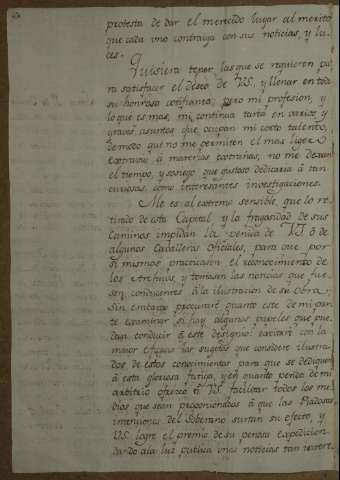 protesta de dar el merecido lugar al merito
que cada uno contraiga con sus noticias, y lu-
ces.
Quisiera tener las que se requieren pa-
ra satisfacer el deseo de V.S., y llenar en toda
su honrosa confianza, pero mi profesion, y
lo que es mas, mi continua tarea en varios, y
graves asuntos que ocupan mi corto talento,
de modo que no me permiten el mas ligero
extravio á materias extrañas, no me dexan
el tiempo, y sosiego que gustoso dedicaria á tan
curiosas, como interesantes investigaciones.
Me es al extremo sensible, que lo re-
tirado de esta Capital y la fragosidad de sus
caminos impidan la venida de V.S. ó de
algunos Caballeros Oficiales, para que por
si mismos practicasen el reconocimiento de
los Archivos, y tomasen las noticias que fue-
sen conducentes á la ilustracion de su Obra;
Sin embargo procuraré quanto esté de mi par-
te examinar si hay algunos papeles que pue-
dan conducir á este designio: excitaré con la
maior eficacia las sugetos que considere ilustra-
dos de estos conocimientos para que se dediquen
á esta gloriosa fatiga, y en quanto penda de mi
arbitrio ofrezco á V.S. facilitar todos los me-
dios que sean proporcionados á que las Piadosas
intenciones del Soberano surtan su efecto, y
V.S. logre el premio de su penosa expedicion
dando á la luz publica unas noticias tan